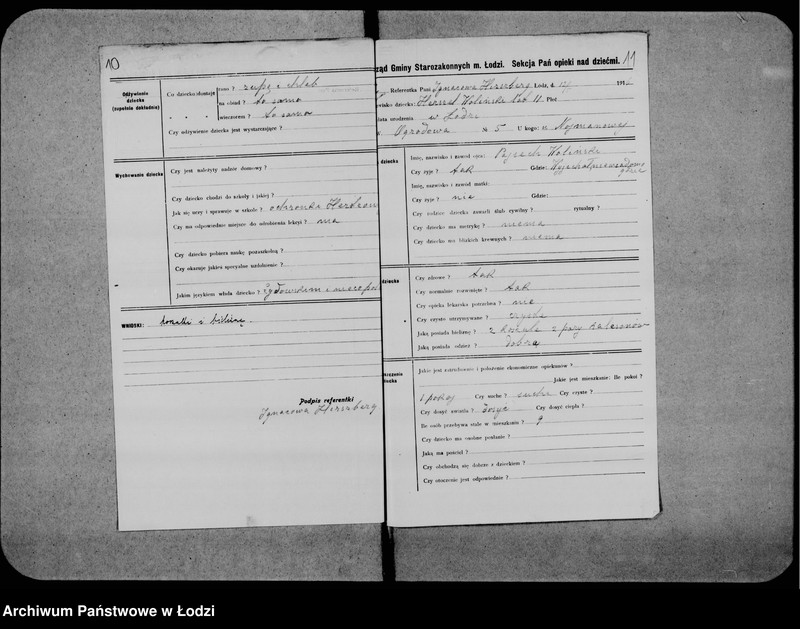 10
Odżywienie
dziecka
(zupełnie dokładnie)
Co dziecko dostaje
rano? zupę i chleb
na obiad? to samo
wieczorem? to samo
Czy odżywienie dziecka jest wystarczające?
Wychowanie dziecka
Czy jest należyty nadzór domowy?
Czy dziecko chodzi do szkoły i jakiej?
Jak się uczy i sprawuje w szkole? ochronka
Czy ma odpowiednie miejsce do odrobienia lekcyi? ma
Czy dziecko pobiera naukę pozaszkolną?
Czy okazuje jakieś specyalne uzdolnienie?
Jakim językiem włada dziecko? żydowskim i
WNIOSKI: i bieliznę.
Podpis referentki
Ignacowa Herszberg
11
ząd Gminy Starozakonnych m. Łodzi. Sekcja Pań opieki nad dziećmi.
Referentka Pani Ignacowa Herszberg Łódź, d. 191
wisko dziecka: Woliński lat 11 Płeć
data urodzenia w Łodzi
Ogrodowa № 5 U kogo:
dziecka
Imię, nazwisko i zawód ojca: Woliński
Czy żyje? tak Gdzie:
Imię, nazwisko i zawód matki:
Czy żyje? nie Gdzie:
Czy rodzice dziecka zawarli ślub cywilny? rytualny?
Czy dziecko ma metrykę? niema
Czy dziecko ma bliskich krewnych? niema
dziecka
Czy zdrowe? tak
Czy normalnie rozwinięte? tak
Czy opieka lekarska potrzebna? nie
Czy czysto utrzymywane? czysto
Jaką posiada bieliznę? 2 koszule 2 pary kalesonów
Jaką posiada odzież? dobrą
Jakie jest zatrudnienie i położenie ekonomiczne opiekunów?
Jakie jest mieszkanie: Ile pokoi?
1 pokój Czy suche? suche Czy czyste?
Czy dosyć światła? dosyć Czy dosyć ciepłe?
Ile osób przebywa stale w mieszkaniu? 9
Czy dziecko ma osobne posłanie?
Jaką ma pościel?
Czy obchodzą się dobrze z dzieckiem?
Czy otoczenie jest odpowiednie?
Archiwum Państwowe w Łodzi